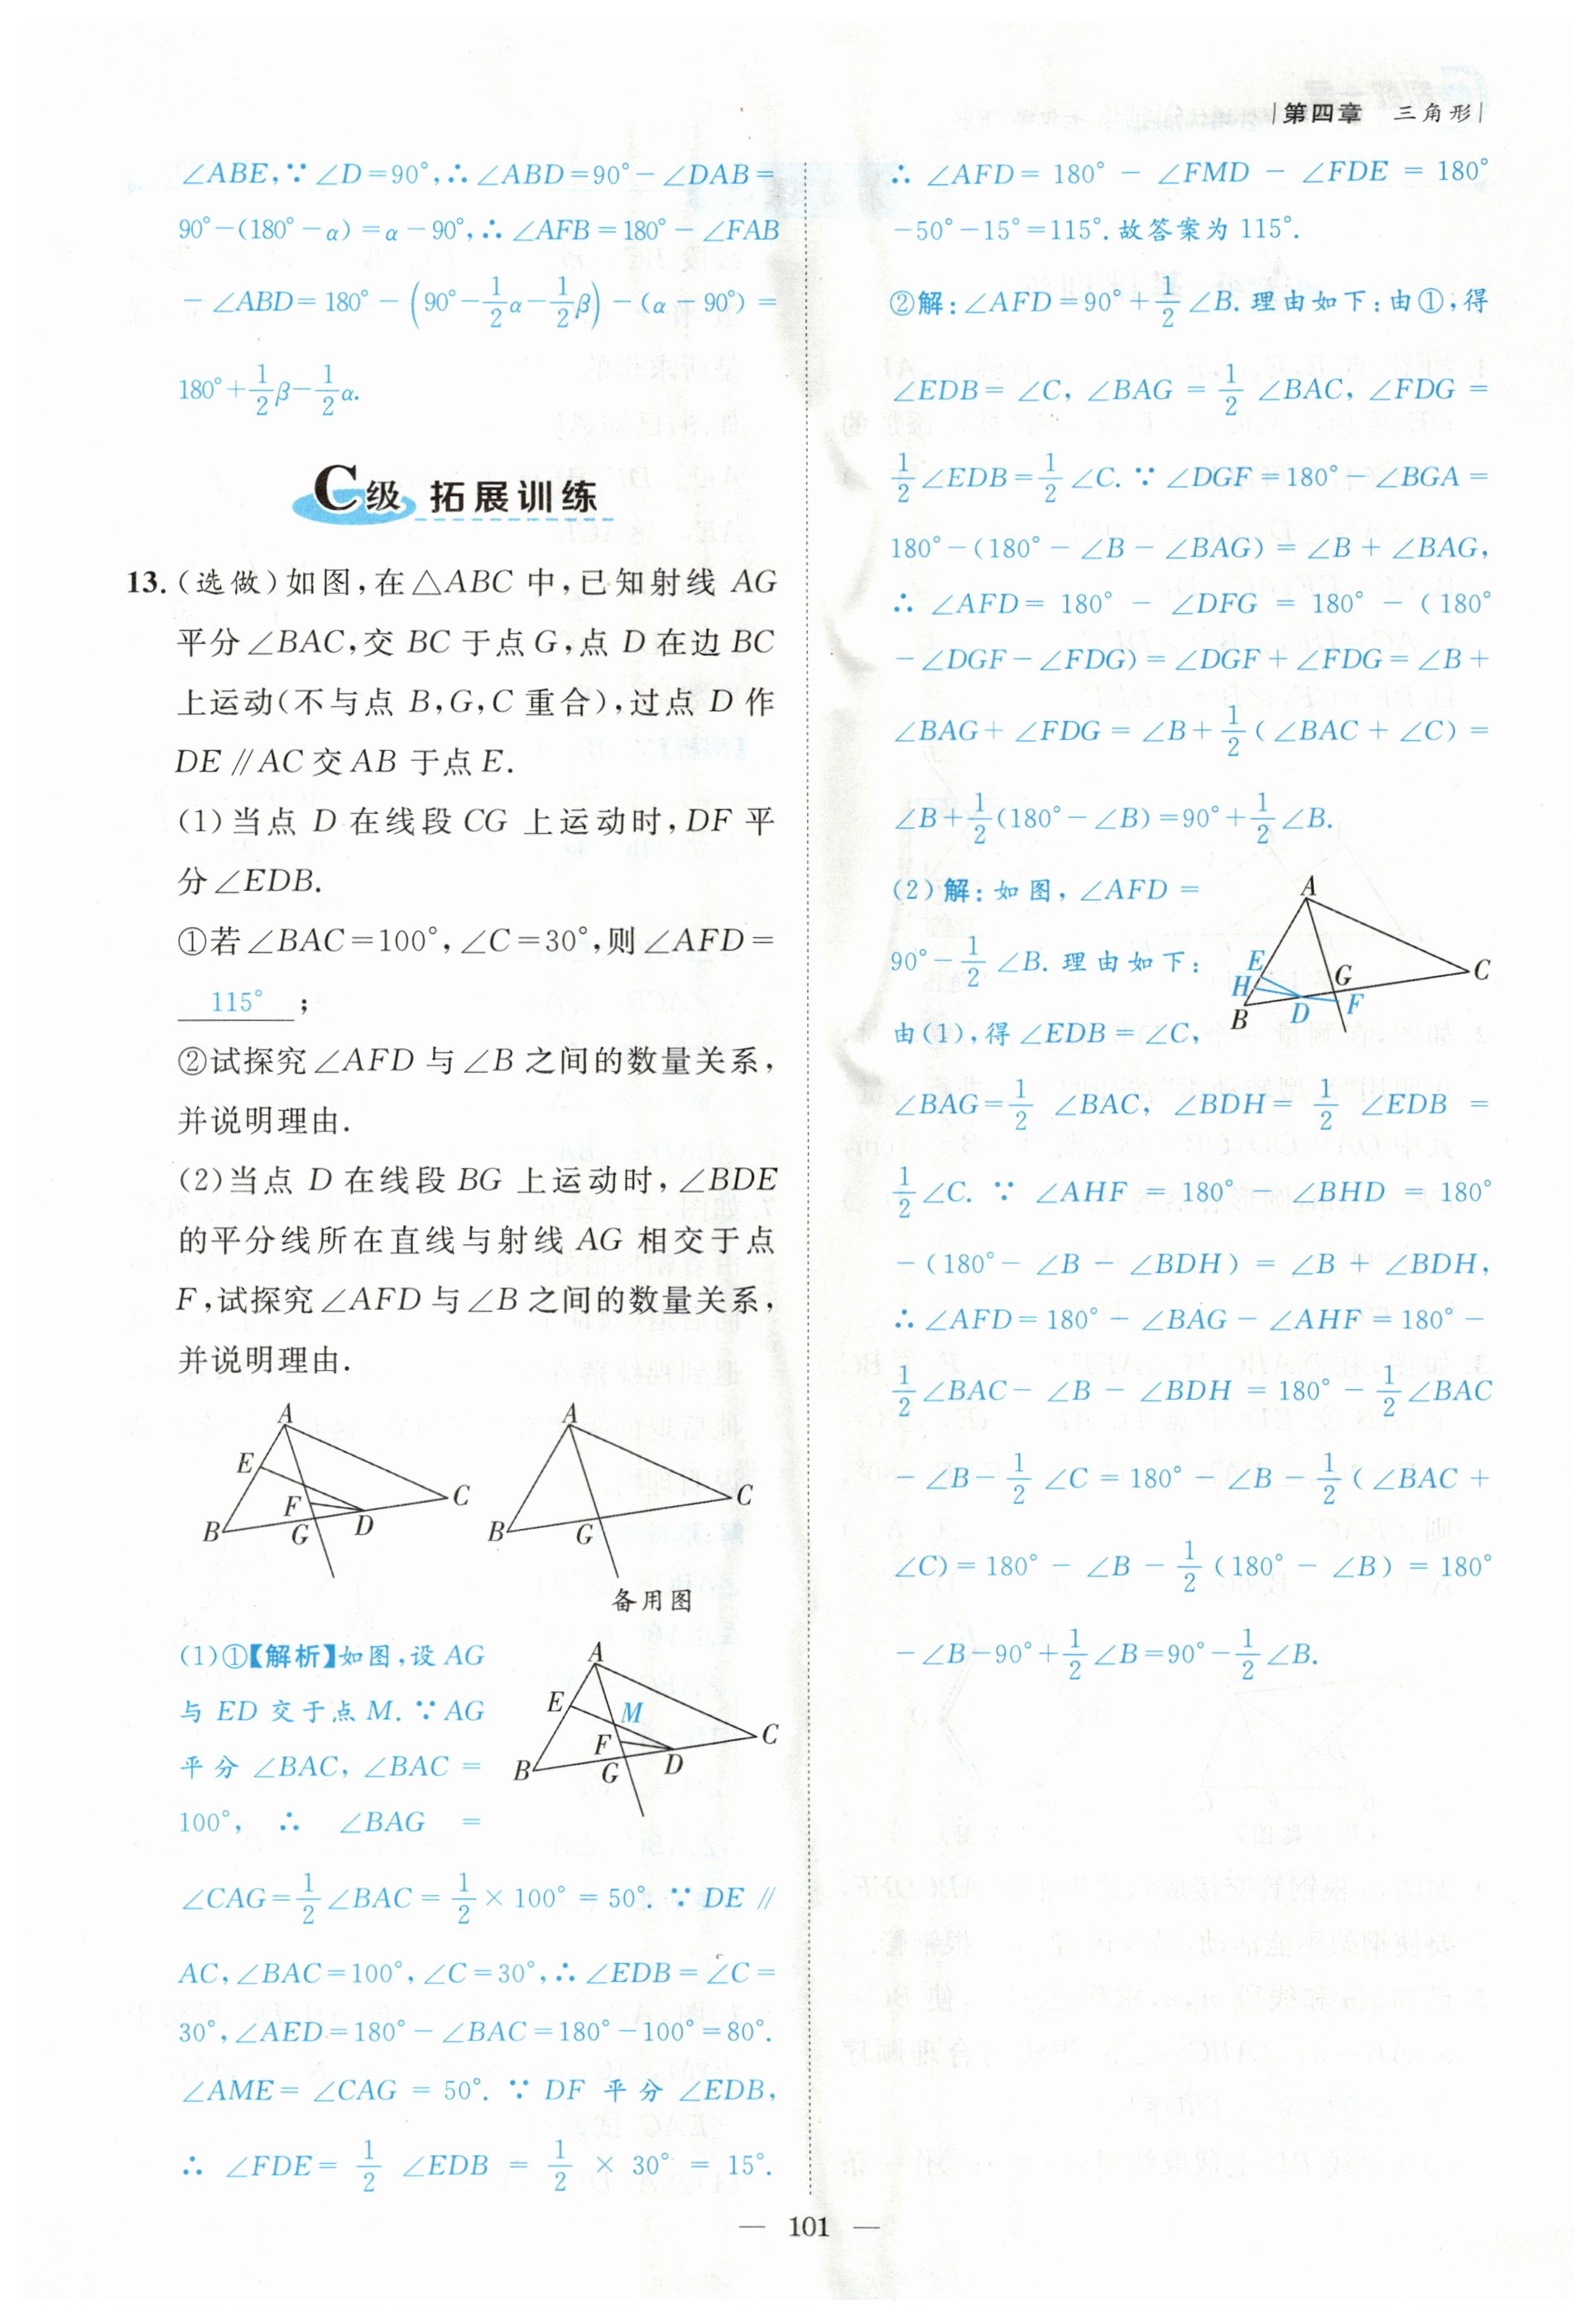 |第四章 三角形|
∠ABE,∵∠D=90°,∴∠ABD=90°-∠DAB=
90°-(180°-α)=α-90°,∴∠AFB=180°-∠FAB
-∠ABD=180°-(90°-1/2α-1/2β)-(α-90°)=
180°+1/2β-1/2α.
C级 拓展训练
13.(选做)如图,在△ABC中,已知射线AG
平分∠BAC,交BC于点G,点D在边BC
上运动(不与点B,G,C重合),过点D作
DE∥AC交AB于点E.
(1)当点D在线段CG上运动时,DF平
分∠EDB.
①若∠BAC=100°,∠C=30°,则∠AFD=
115°;
②试探究∠AFD与∠B之间的数量关系,
并说明理由.
(2)当点D在线段BG上运动时,∠BDE
的平分线所在直线与射线AG相交于点
F,试探究∠AFD与∠B之间的数量关系,
并说明理由.
A
E
F
C
B
G
D
A
C
B
G
备用图
(1)①【解析】如图,设AG
与ED交于点M.∵AG
平分∠BAC,∠BAC=
100°,∴∠BAG=
A
E
M
F
C
B
G
D
∠CAG=1/2∠BAC=1/2×100°=50°.∵DE∥
AC,∠BAC=100°,∠C=30°,∴∠EDB=∠C=
30°,∠AED=180°-∠BAC=180°-100°=80°.
∠AME=∠CAG=50°.∵DF平分∠EDB,
∴∠FDE=1/2∠EDB=1/2×30°=15°.
∴∠AFD=180°-∠FMD-∠FDE=180°
-50°-15°=115°.故答案为115°.
②解:∠AFD=90°+1/2∠B.理由如下:由①,得
∠EDB=∠C,∠BAG=1/2∠BAC,∠FDG=
1/2∠EDB=1/2∠C.∵∠DGF=180°-∠BGA=
180°-(180°-∠B-∠BAG)=∠B+∠BAG,
∴∠AFD=180°-∠DFG=180°-(180°
-∠DGF-∠FDG)=∠DGF+∠FDG=∠B+
∠BAG+∠FDG=∠B+1/2(∠BAC+∠C)=
∠B+1/2(180°-∠B)=90°+1/2∠B.
(2)解:如图,∠AFD=
90°-1/2∠B.理由如下:
由(1),得∠EDB=∠C,
A
E
H
G
C
B
D
F
∠BAG=1/2∠BAC,∠BDH=1/2∠EDB=
1/2∠C.∵∠AHF=180°-∠BHD=180°
-(180°-∠B-∠BDH)=∠B+∠BDH,
∴∠AFD=180°-∠BAG-∠AHF=180°-
1/2∠BAC-∠B-∠BDH=180°-1/2∠BAC
-∠B-1/2∠C=180°-∠B-1/2(∠BAC+
∠C)=180°-∠B-1/2(180°-∠B)=180°
-∠B-90°+1/2∠B=90°-1/2∠B.
— 101 —